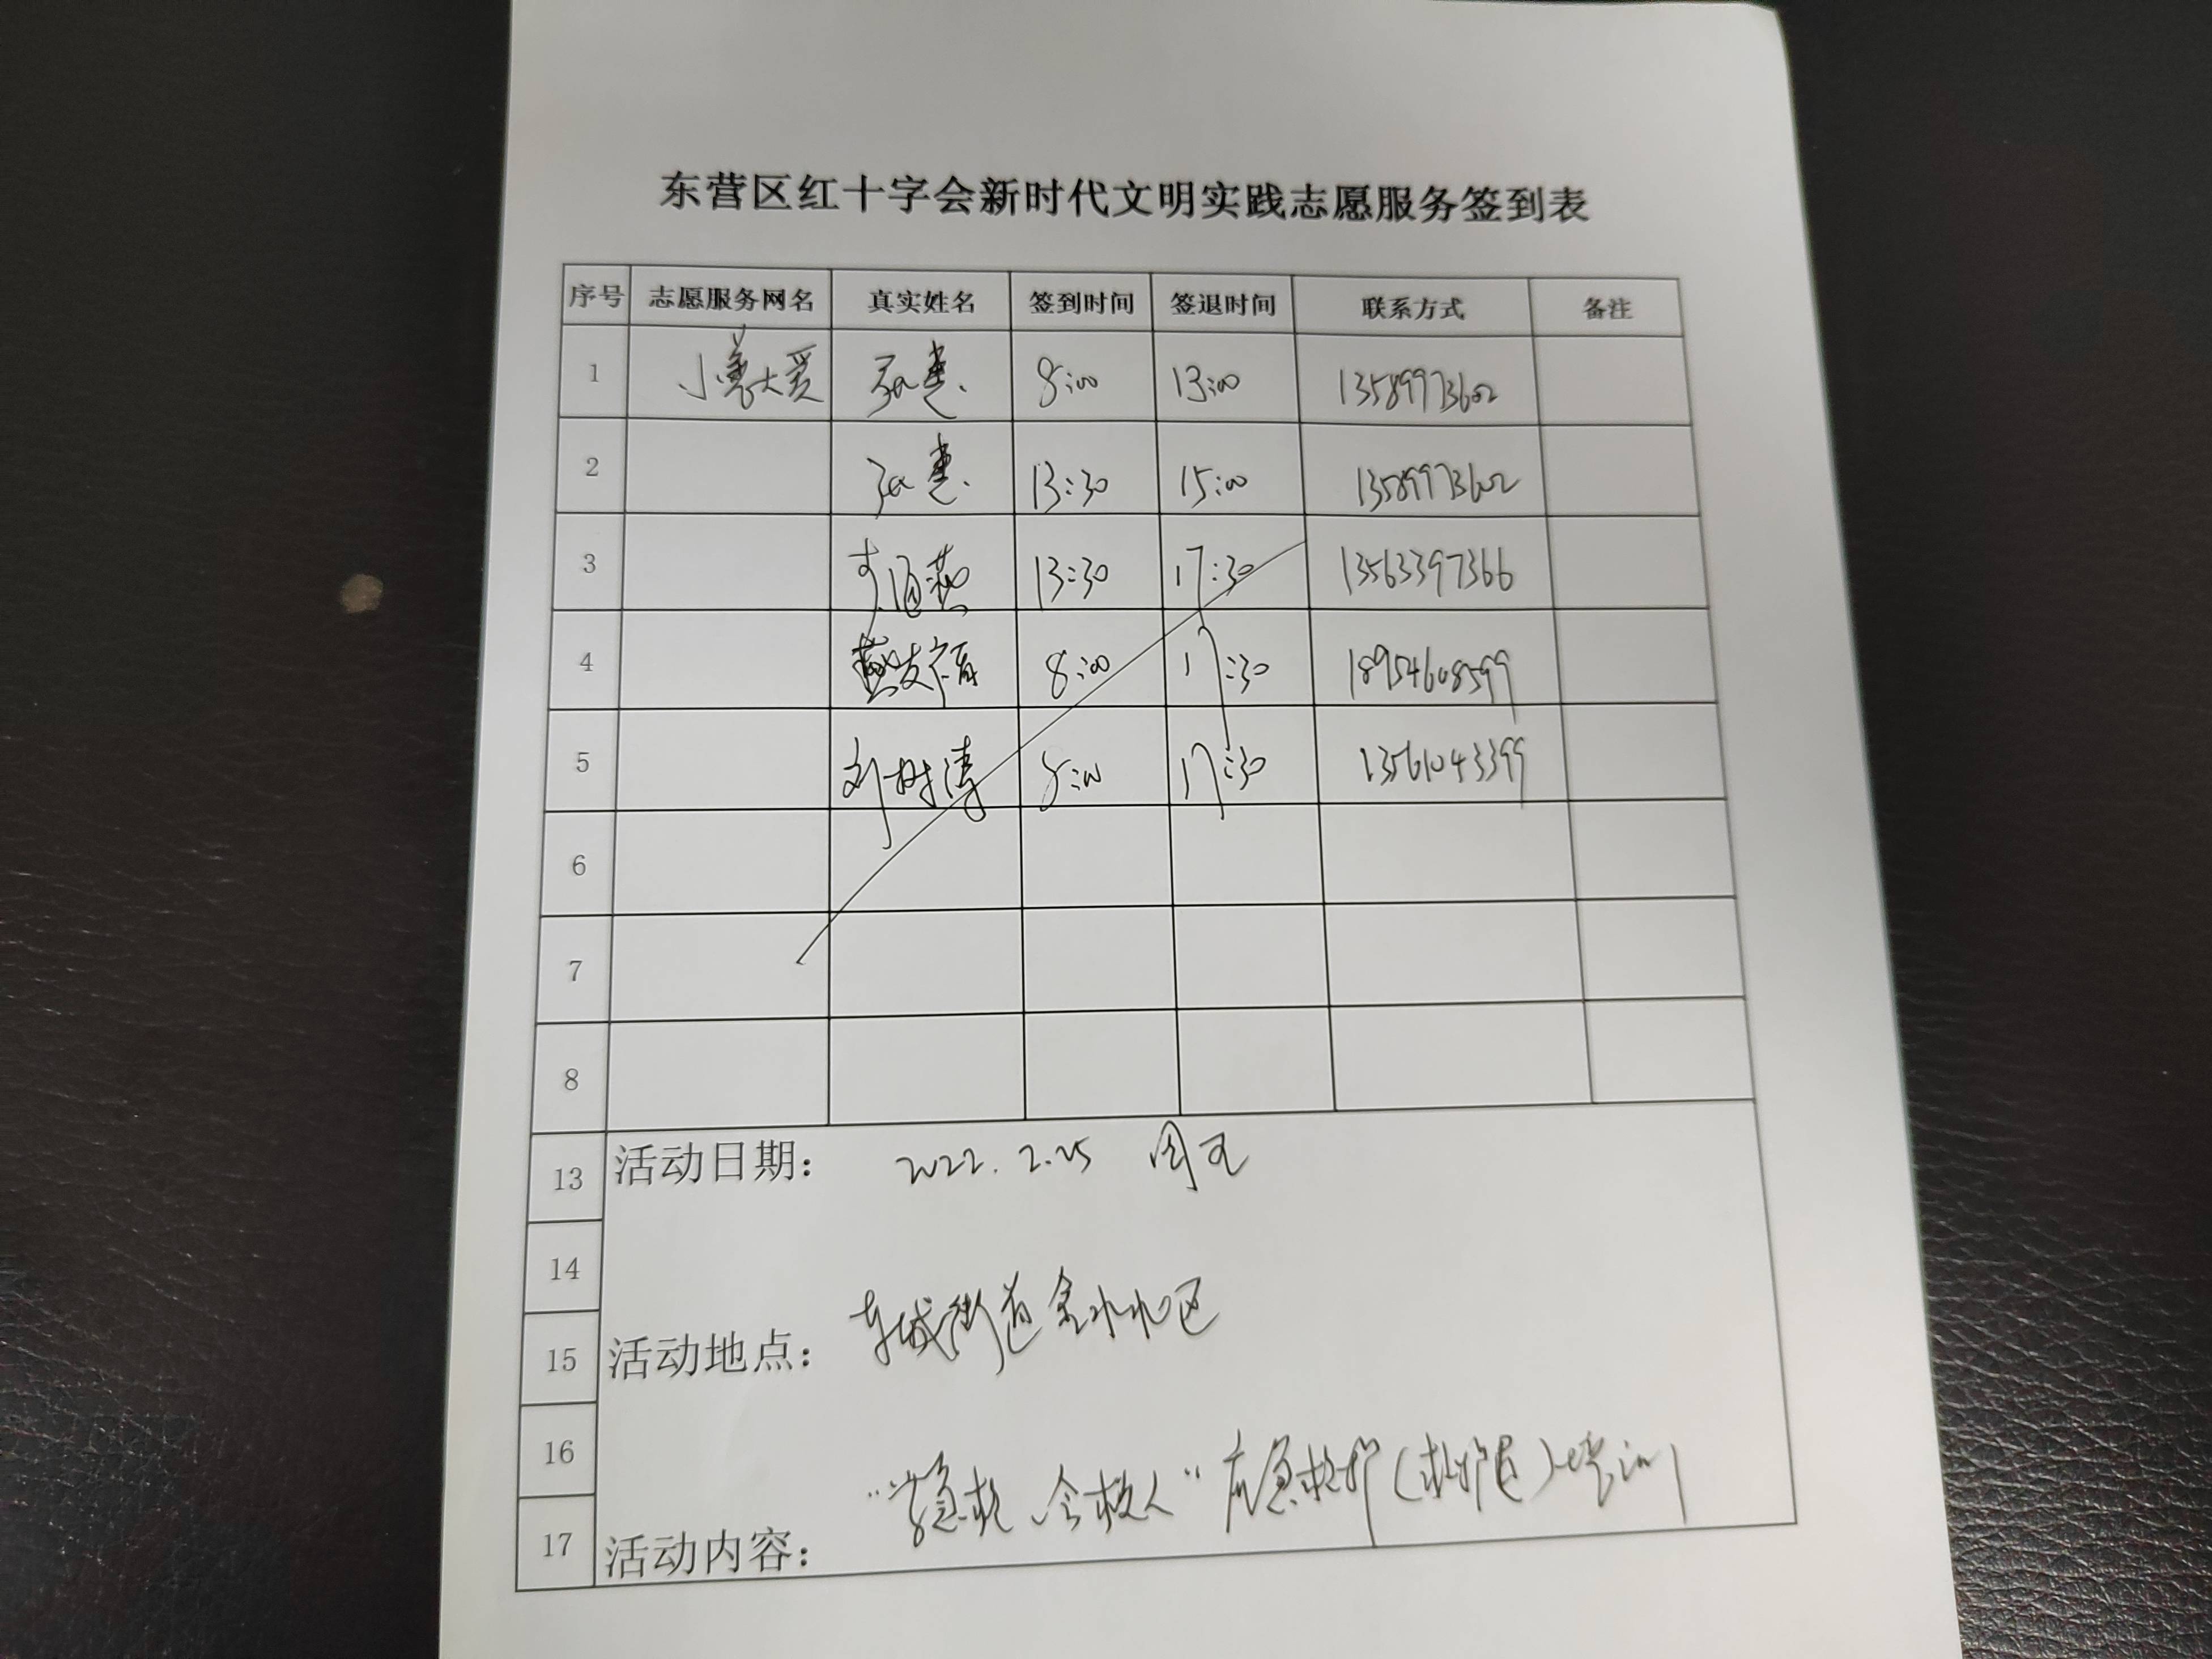 东营区红十字会新时代文明实践志愿服务签到表
序号 志愿服务网名 真实姓名 签到时间 签退时间 联系方式 备注
1 小善大爱 8:00 13:00 13589973602
2 13:30 15:00 13589973602
3 13:30 17:30 13563397366
4 8:00 17:30 18954608599
5 刘树涛 8:00 17:30 13561043399
6
7
8
13 活动日期： 2022.2.25 周五
14
15 活动地点： 东城街道金水社区
16
17 活动内容： “学急救、会救人”应急救护（救护员）培训